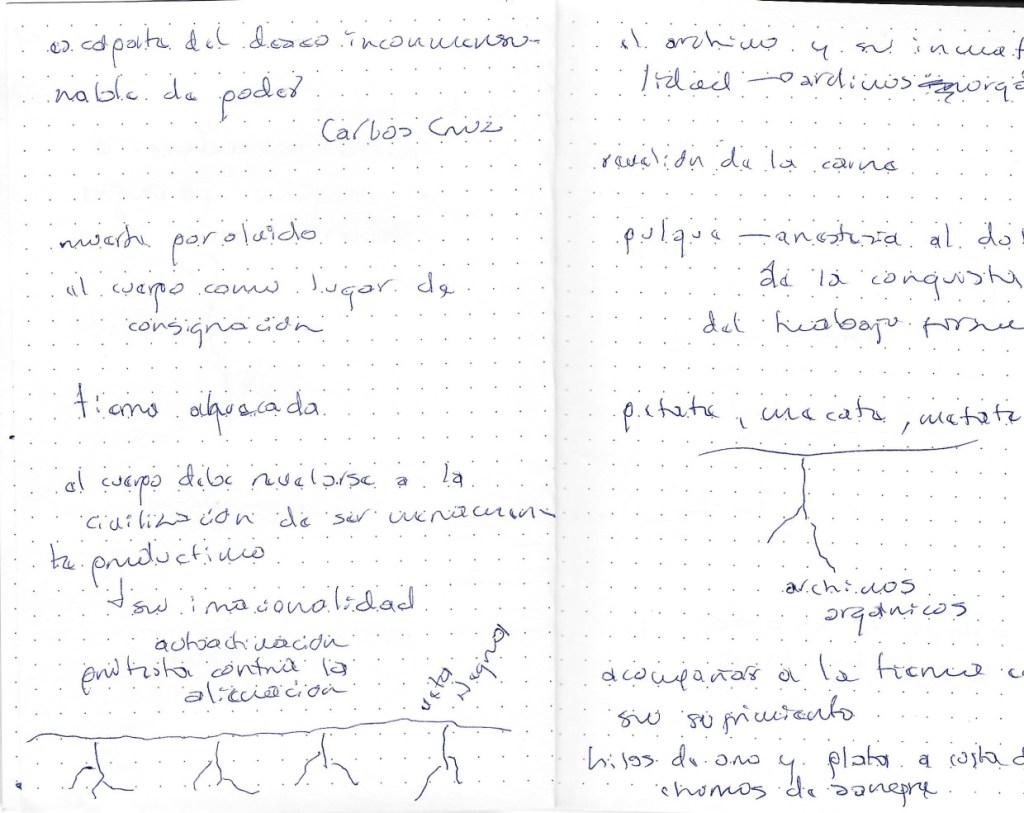 es capata del deseo inconmensu-
rable de poder
Carlos Cruz
muerte por olvido
el cuerpo como lugar de
consignación
tierra ahuecada
el cuerpo debe revelarse a la
civilización de ser meramen-
te productivo
su irracionalidad
autoactivación
protesta contra la
alienación
veta Negra
el archivo y su
lidad archivos
revelión de la carne
pulque — anestesia al
de la conquista
del trabajo
petate, mecate, metate
archivos
orgánicos
acompañar a la tierra
su sufrimiento
hilos de oro y plata a costa
chorros de sangre